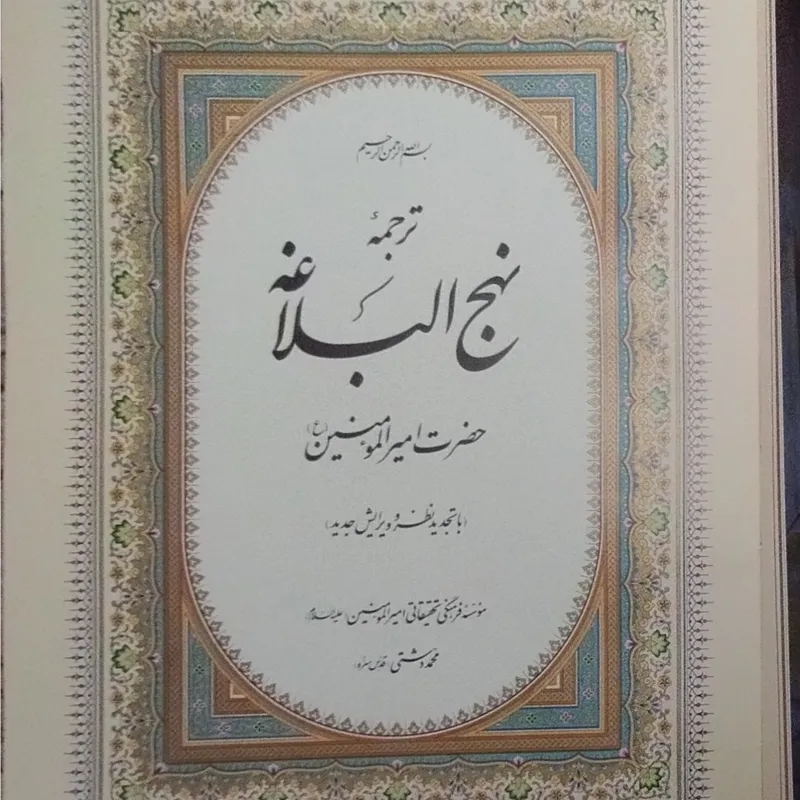 بسم الله الرحمن الرحیم
ترجمهٔ
نهج البلاغه
حضرت امیرالمؤمنین (ع)
(با تجدید نظر و ویرایش جدید)
مؤسسه فرهنگی تحقیقاتی امیرالمؤمنین (علیه السلام)
محمد دشتی (قدس سره)